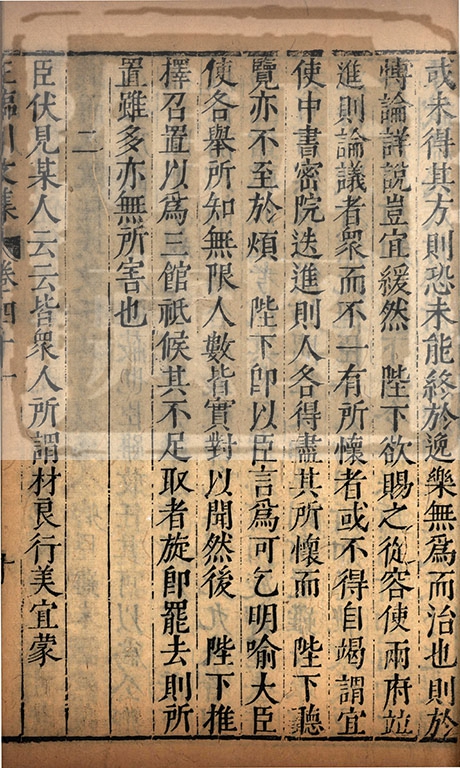 或未得其方則恐未能終於逸樂無為而治也則於
愽論詳說豈宜緩然 陛下欲賜之從容使兩府並
進則論議者衆而不一有所懷者或不得自竭謂宜
使中書密院迭進則人各得盡其所懷而 陛下聽
覽亦不至於煩 陛下即以臣言爲可乞明喻大臣
使各舉所知無限人數皆實對以聞然後 陛下推
擇召置以爲三館祇候其不足取者旋即罷去則所
置雖多亦無所害也
二
臣伏見某人云云皆衆人所謂材良行美宜蒙
王臨川文集 卷四十一 十